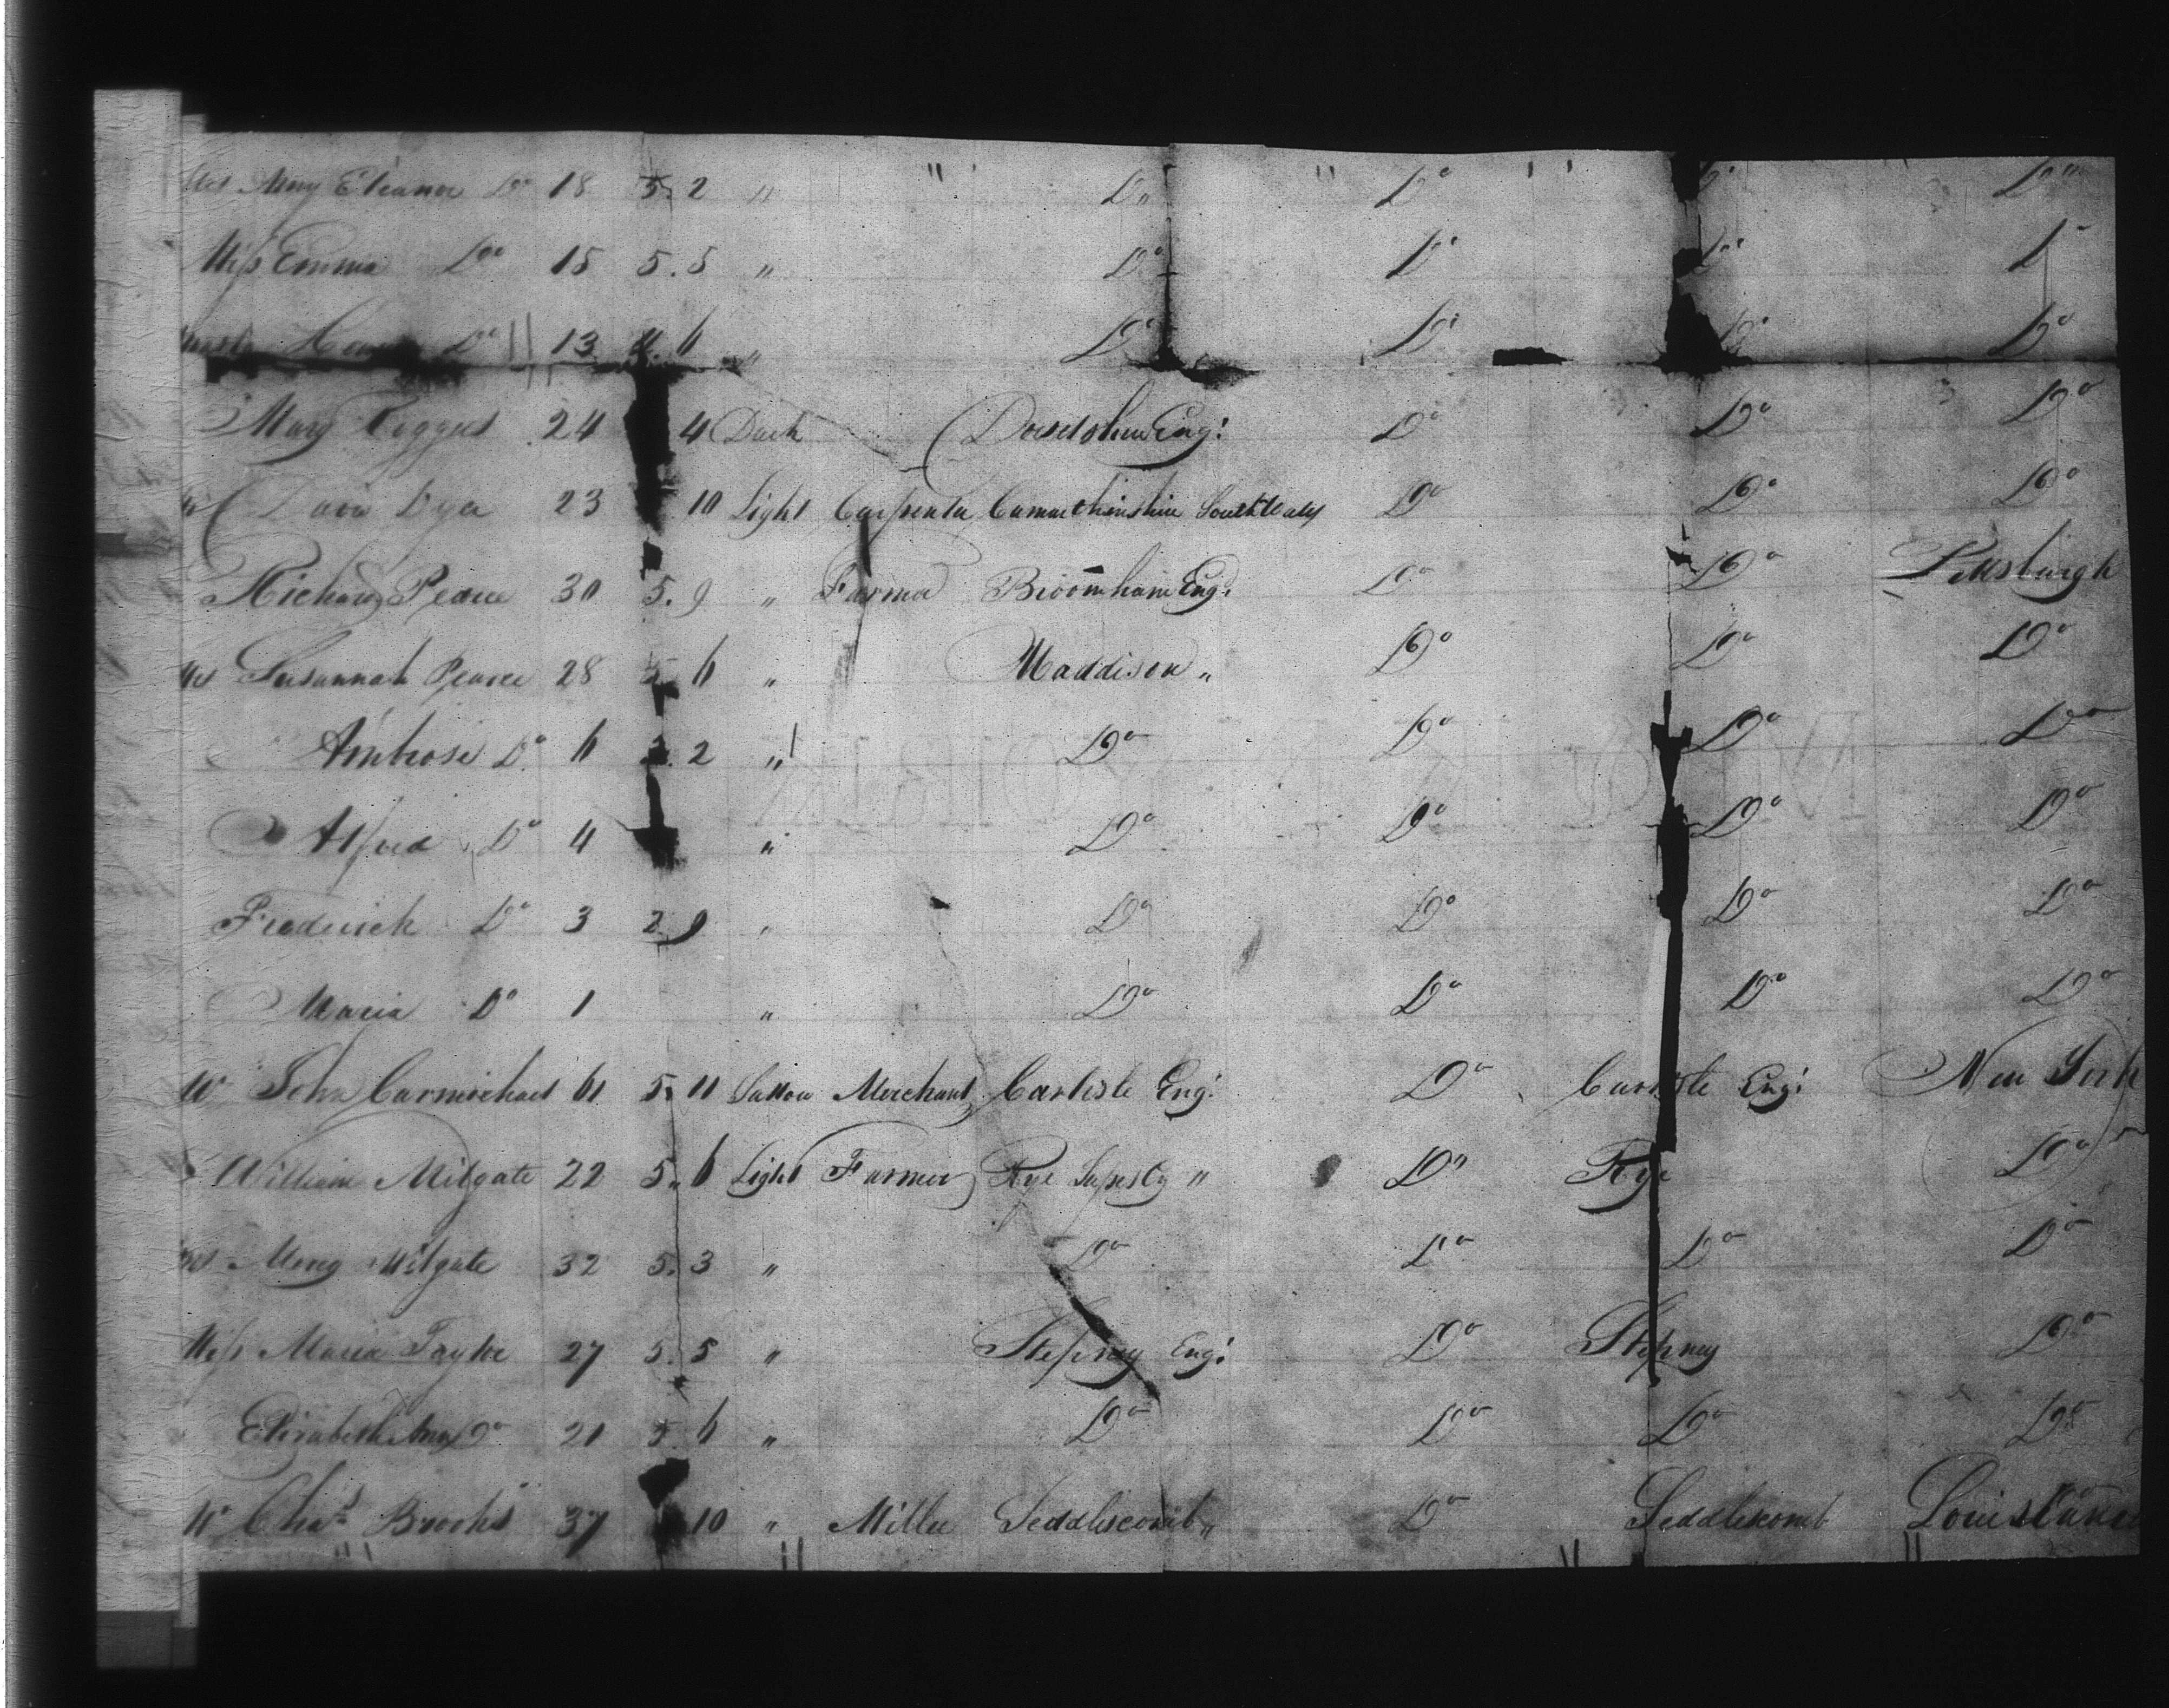 Mary Eleanor Do 18 5. 2 " " Do " Do Do Do
Miss Emma Do 15 5. 5 " Do Do Do Do
Do 13 4. 6 " Do Do Do Do
Mary 24 4 Dark Dorsetshire Eng: Do Do Do
Dyer 23 10 Light Carpenter Carmarthinshire South Wales Do Do Do
Richard Pearce 30 5. 9 " Farmer Broomham Eng: Do Do Pittsburgh
Susannah Pearce 28 5 6 " Maddison " Do Do Do
Ambrose Do 6 3. 2 " Do Do Do Do
Alfred Do 4 " Do Do Do Do
Frederick Do 3 2. 9 " Do Do Do Do
Maria Do 1 " Do Do Do Do
Mr John Carmichael 61 5. 11 Sallow Merchant Carlisle Eng: Do Carlisle Eng: New York
William Milgate 22 5. 6 Light Farmer Rye " Do Rye Do
Mary Milgate 32 5. 3 " Do Do Do Do
Miss Maria Taylor 27 5. 5 " Stepney Eng: Do Stepney Do
Elizabeth Ann Do 21 5. 6 " Do Do Do Do
Mr Chas Brooks 37 10 " Miller Seddlescomb " Do Seddlescomb Louisiana